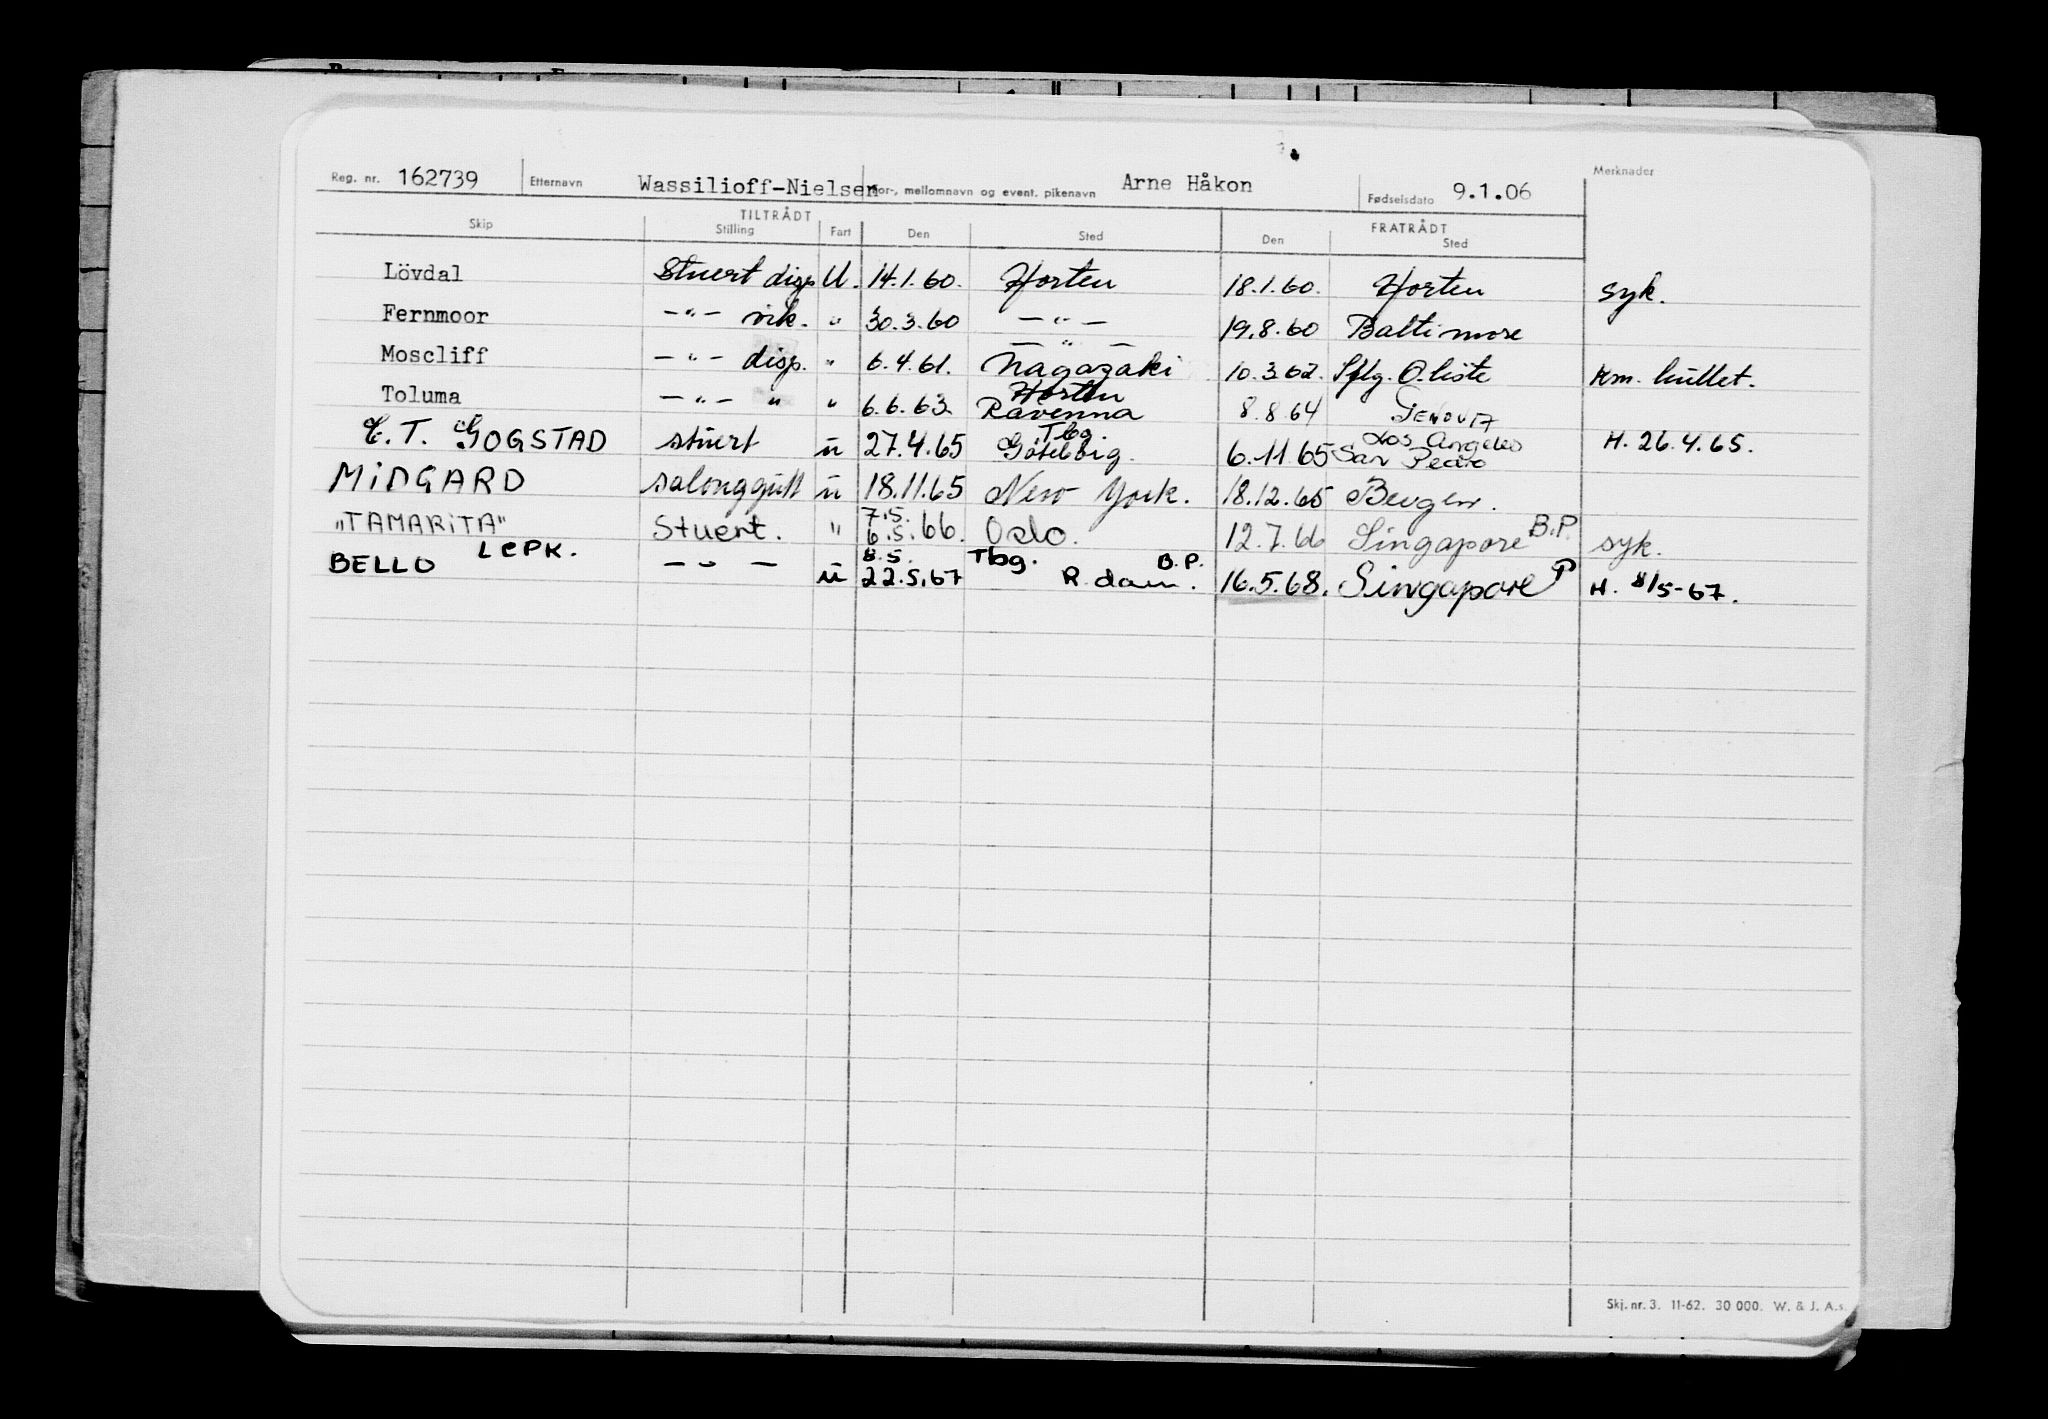 Reg. nr. 162739 Etternavn Wassilioff-Nielsen For-, mellomnavn og event. pikenavn Arne Håkon Fødselsdato 9.1.06 Merknader
TILTRÅDT FRATRÅDT
Skip Stilling Fart Den Sted Den Sted
Lövdal Stuert disp U. 14.1.60. Horten 18.1.60. Horten syk.
Fernmoor -"- vik. " 30.3.60 -"- 19.8.60 Baltimore
-"-
Moscliff -"- disp. " 6.4.61. Nagazaki 10.3.62. Sflg. O.liste Km. hullet.
Horten
Toluma -"- " " 6.6.63. Ravenna 8.8.64 GENOVA
Tbg Los Angeles
C.T. GOGSTAD stuert u 27.4.65 Göteborg. 6.11.65 San Pedro H. 26.4.65.
MIDGARD salonggutt u 18.11.65 New York. 18.12.65 Bergen.
7.5.
"TAMARITA" Stuert. " 6.5.66. Oslo. 12.7.66 Singapore B.P. syk.
8.5. Tbg. B.P.
BELLO LCPK. -"- u 22.5.67 R.dam. 16.5.68. Singapore P H. 8/5-67.
Skj. nr. 3. 11-62. 30 000. W. & J. A.s.